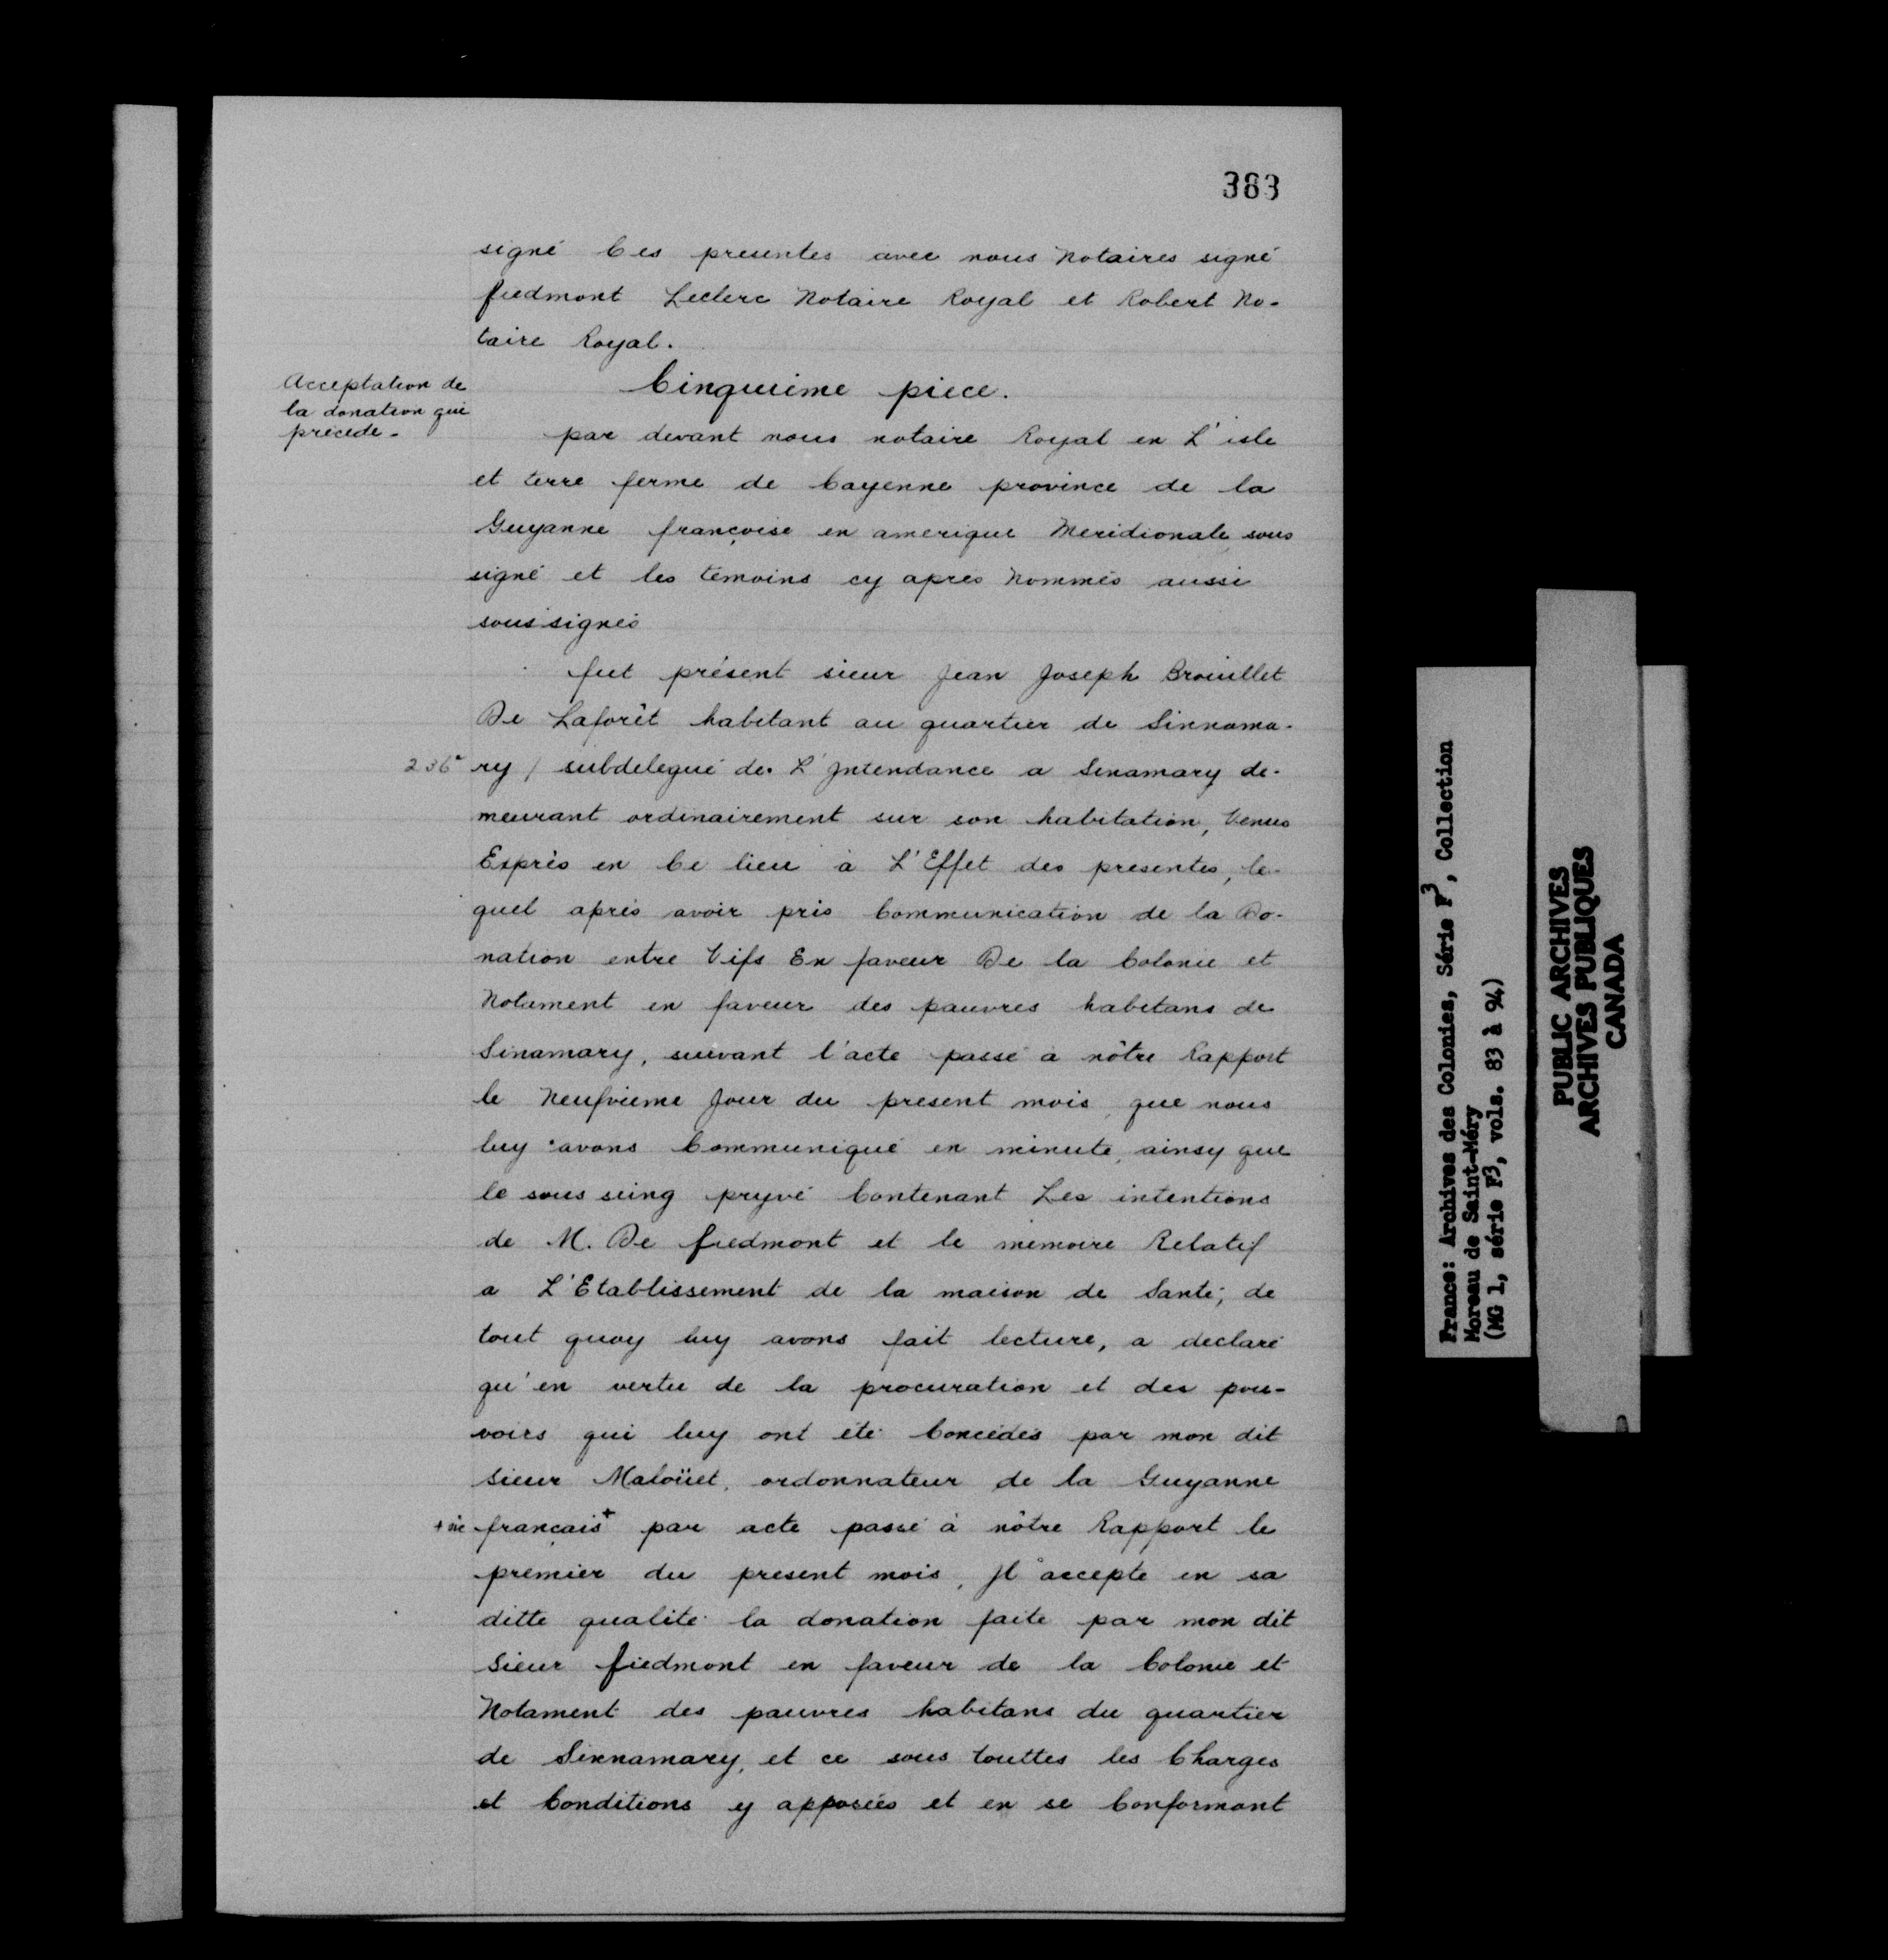 383
signé Ces presentes avec nous Notaires signé
fiedmont Leclerc Notaire Royal et Robert No-
taire Royal.
Acceptation de
la donation qui
précede-
Cinquieme piece.
par devant nous notaire Royal en L'isle
et terre ferme de Cayenne province de la
Guyanne françoise en amerique Meridionale sous
signé et les temoins cy apres Nommés aussi
soussignés
fut présent sieur Jean Joseph Brouillet
De Laforêt habitant au quartier de Sinnama-
236
ry / subdelegué de L'Intendance a Sinamary de-
meurant ordinairement sur son habitation, Venus
Exprès en Ce lieu à L'Effet des presentes, le-
quel aprés avoir pris Communication de la Do-
nation entre Vifs En faveur De la Colonie et
Notament en faveur des pauvres habitans de
Sinamary, suivant l'acte passé a nôtre Rapport
le Neufvieme Jour du present mois, que nous
luy avons Communiqué en minute, ainsy que
le sous seing pryvé Contenant Les intentions
de M. De fiedmont et le memoire Relatif
a L'Etablissement de la maison de Santé; de
tout quoy luy avons fait lecture, a declaré
qu'en vertu de la procuration et des pou-
voirs qui luy ont été Concédés par mon dit
Sieur Maloüet, ordonnateur de la Guyanne
français+ par acte passé à nôtre Rapport le
premier du present mois, Jl accepte en sa
ditte qualité la donation faite par mon dit
Sieur fiedmont en faveur de la Colonie et
Notament des pauvres habitans du quartier
de Sinnamary, et ce sous touttes les Charges
et Conditions y apposées et en se Conformant
France: Archives des Colonies, Série F3, Collection
Moreau de Saint-Méry
(MG 1, série F3, vols. 83 à 94)
PUBLIC ARCHIVES
ARCHIVES PUBLIQUES
CANADA